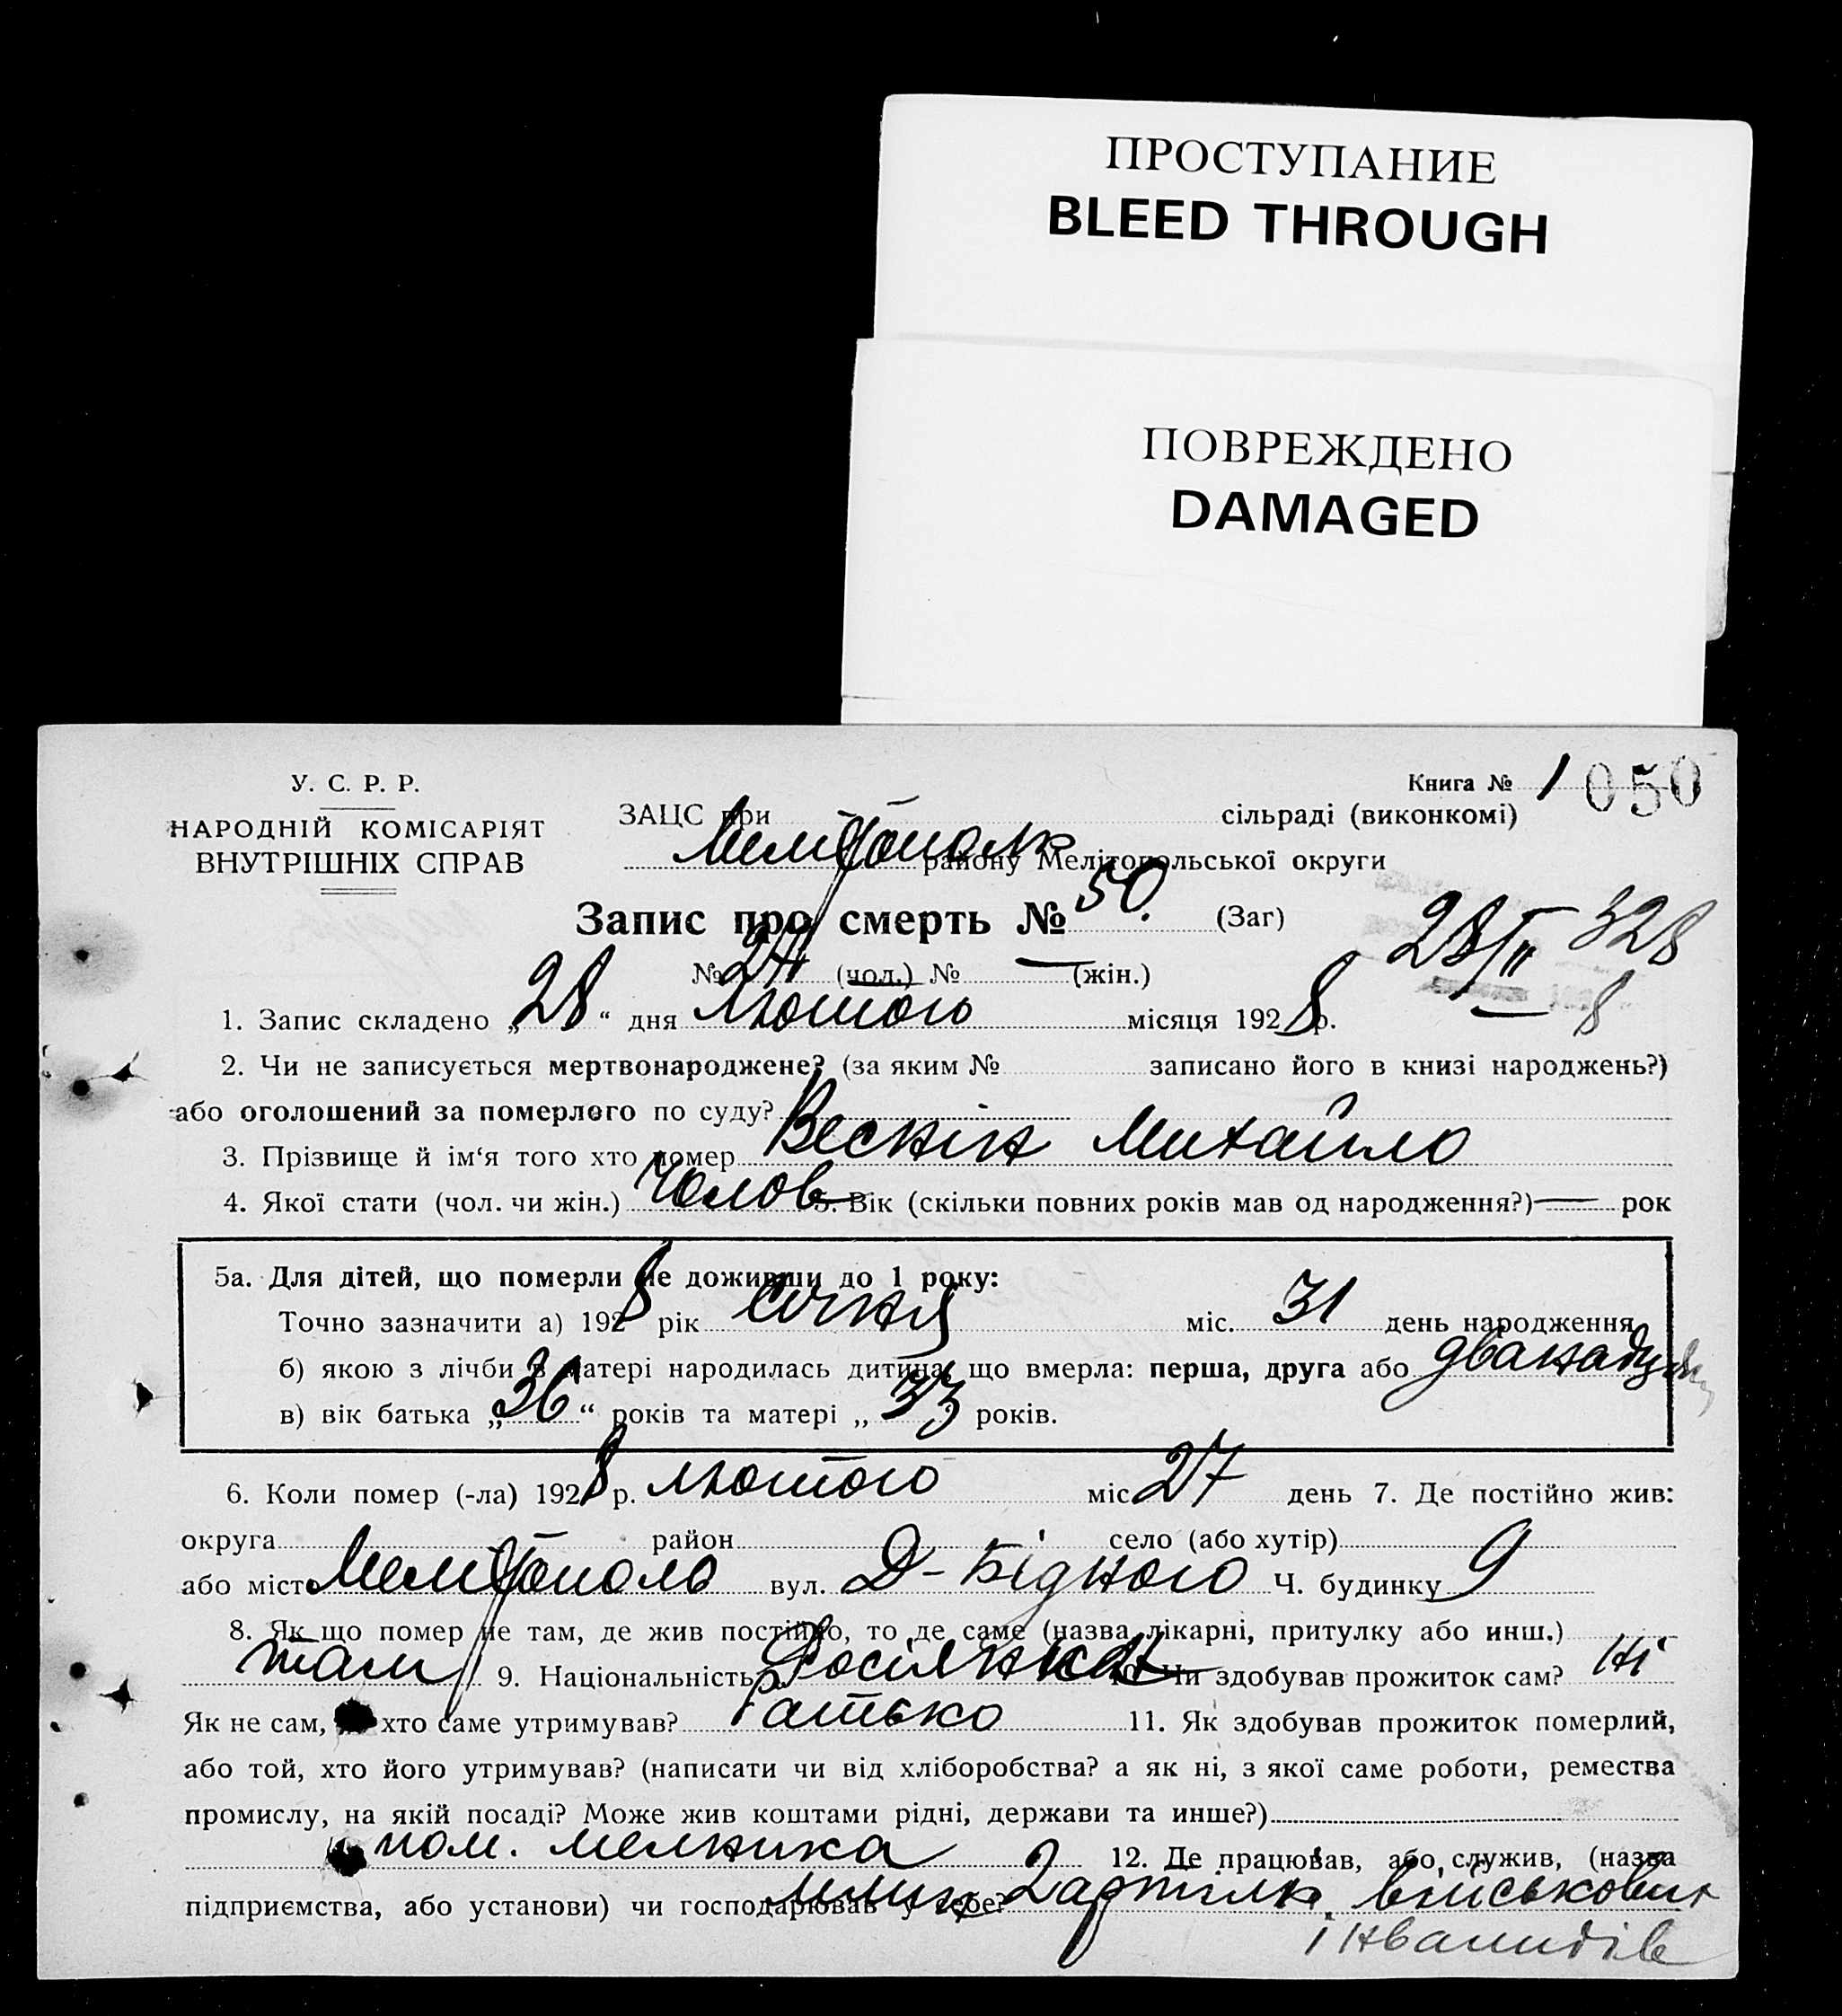 ПРОСТУПАНИЕ
BLEED THROUGH
ПОВРЕЖДЕНО
DAMAGED
У. С. Р. Р.
НАРОДНІЙ КОМІСАРІЯТ
ВНУТРІШНІХ СПРАВ
Книга № 1 050
ЗАЦС при сільраді (виконкомі)
Мелітополь району Мелітопольської округи
Запис про смерть № 50. (Заг)
28/II 328
№ 24 (чол.) № — (жін.)
8
1. Запис складено „28“ дня Лютого місяця 1928 р.
2. Чи не записується мертвонароджене? (за яким № записано його в книзі народжень?)
або оголошений за померлого по суду? -
3. Прізвище й ім‘я того хто помер Веснін Михайло
4. Якої стати (чол. чи жін.) Чолов 5. Вік (скільки повних років мав од народження?) — рок
5а. Для дітей, що померли не доживши до 1 року:
Точно зазначити а) 1928 рік Січня міс. 31 день народження
б) якою з лічби в матері народилась дитина, що вмерла: перша, друга або
в) вік батька „36“ років та матері „33 років.
6. Коли помер (-ла) 1928 р. лютого міс. 27 день 7. Де постійно жив:
округа район село (або хутір)
або місто Мелітополь вул. Д-Бідного Ч. будинку 9
8. Як що помер не там, де жив постійно, то де саме (назва лікарні, притулку або инш.)
там 9. Національність 10. Чи здобував прожиток сам? Ні
Як не сам, хто саме утримував? Батько 11. Як здобував прожиток померлий,
або той, хто його утримував? (написати чи від хліборобства? а як ні, з якої саме роботи, ремества
промислу, на якій посаді? Може жив коштами рідні, держави та инше?)
пом. мелника 12. Де працював, або служив, (назва
підприємства, або установи) чи господарював у себе? Млин 2 артіль військових
інвалидів